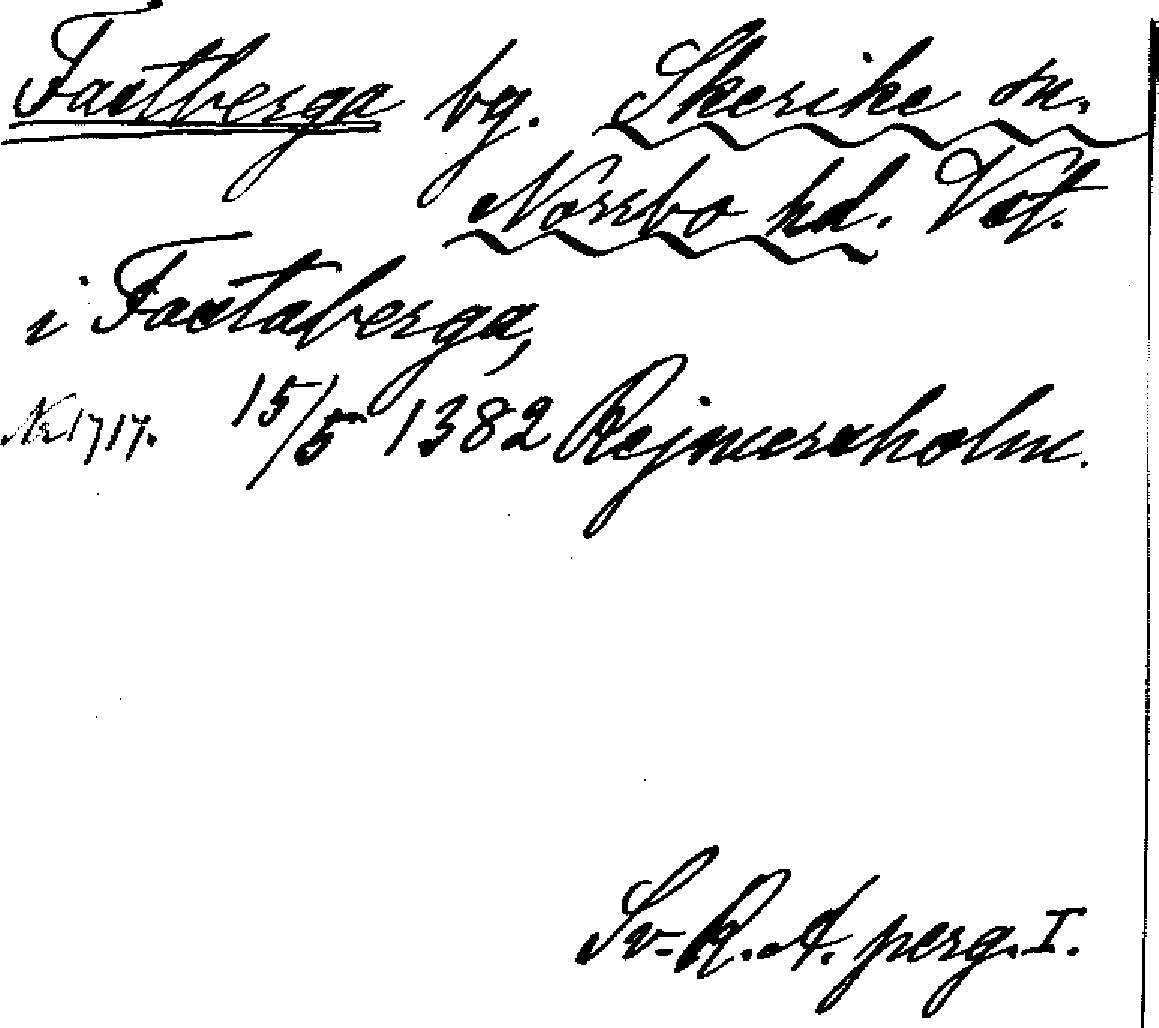 Fastberga bg. Skerike sn.
Norrbo hd. Vst.
i Fastaberga,
Nr 1717. 15/5 1382 Rejmersholm.
Sv. R. A. perg. I.